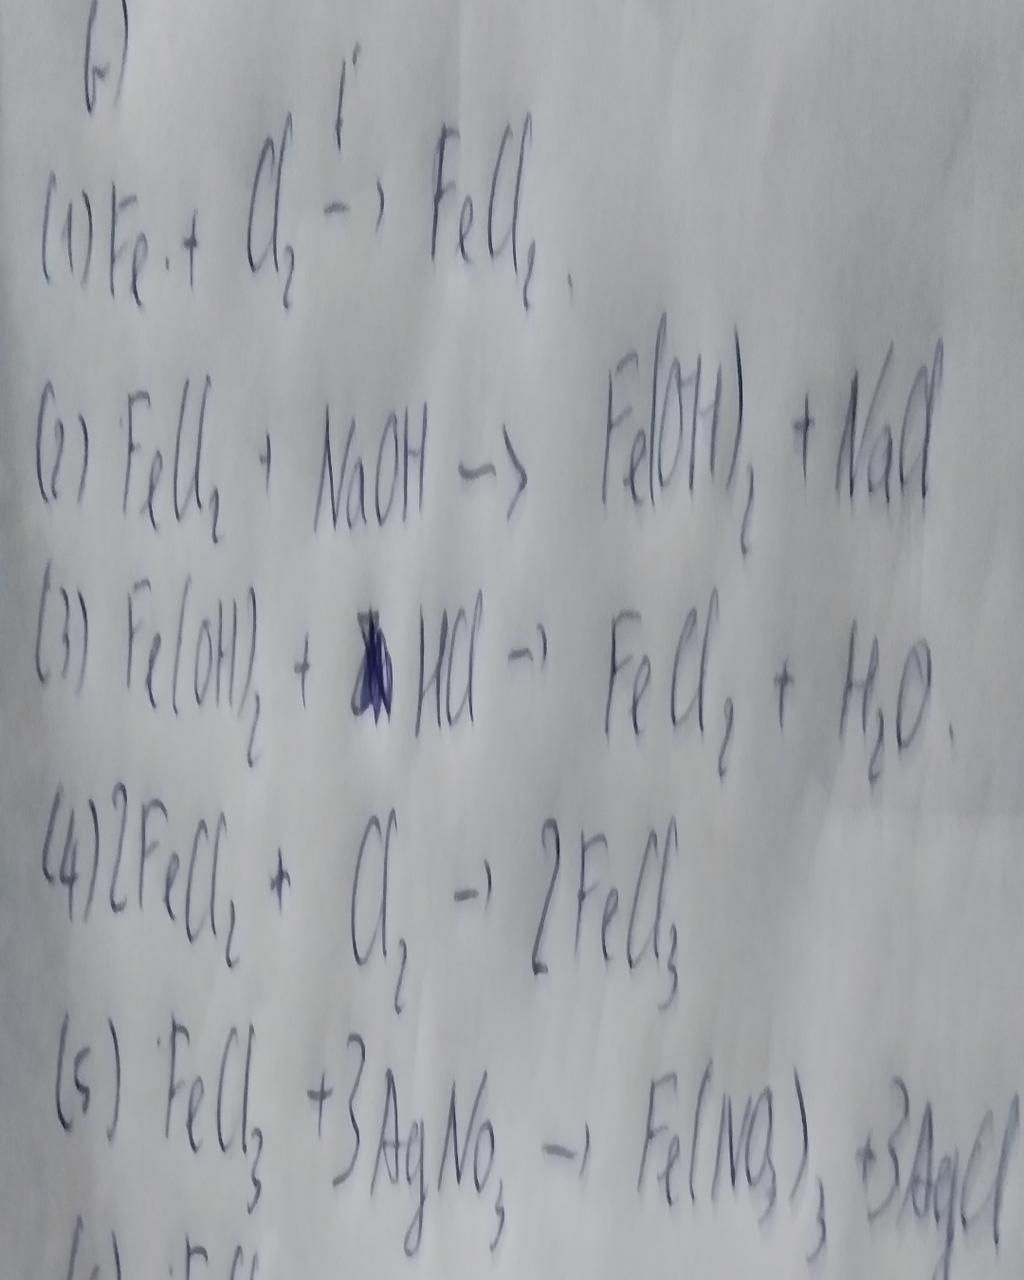 b)
(1) Fe + Cl₂ → FeCl₂.
(2) FeCl₂ + NaOH → Fe(OH)₂ + NaCl
(3) Fe(OH)₂ + HCl → FeCl₂ + H₂O.
(4) 2FeCl₂ + Cl₂ → 2FeCl₃
(5) FeCl₃ + 3AgNO₃ → Fe(NO₃)₃ + 3AgCl